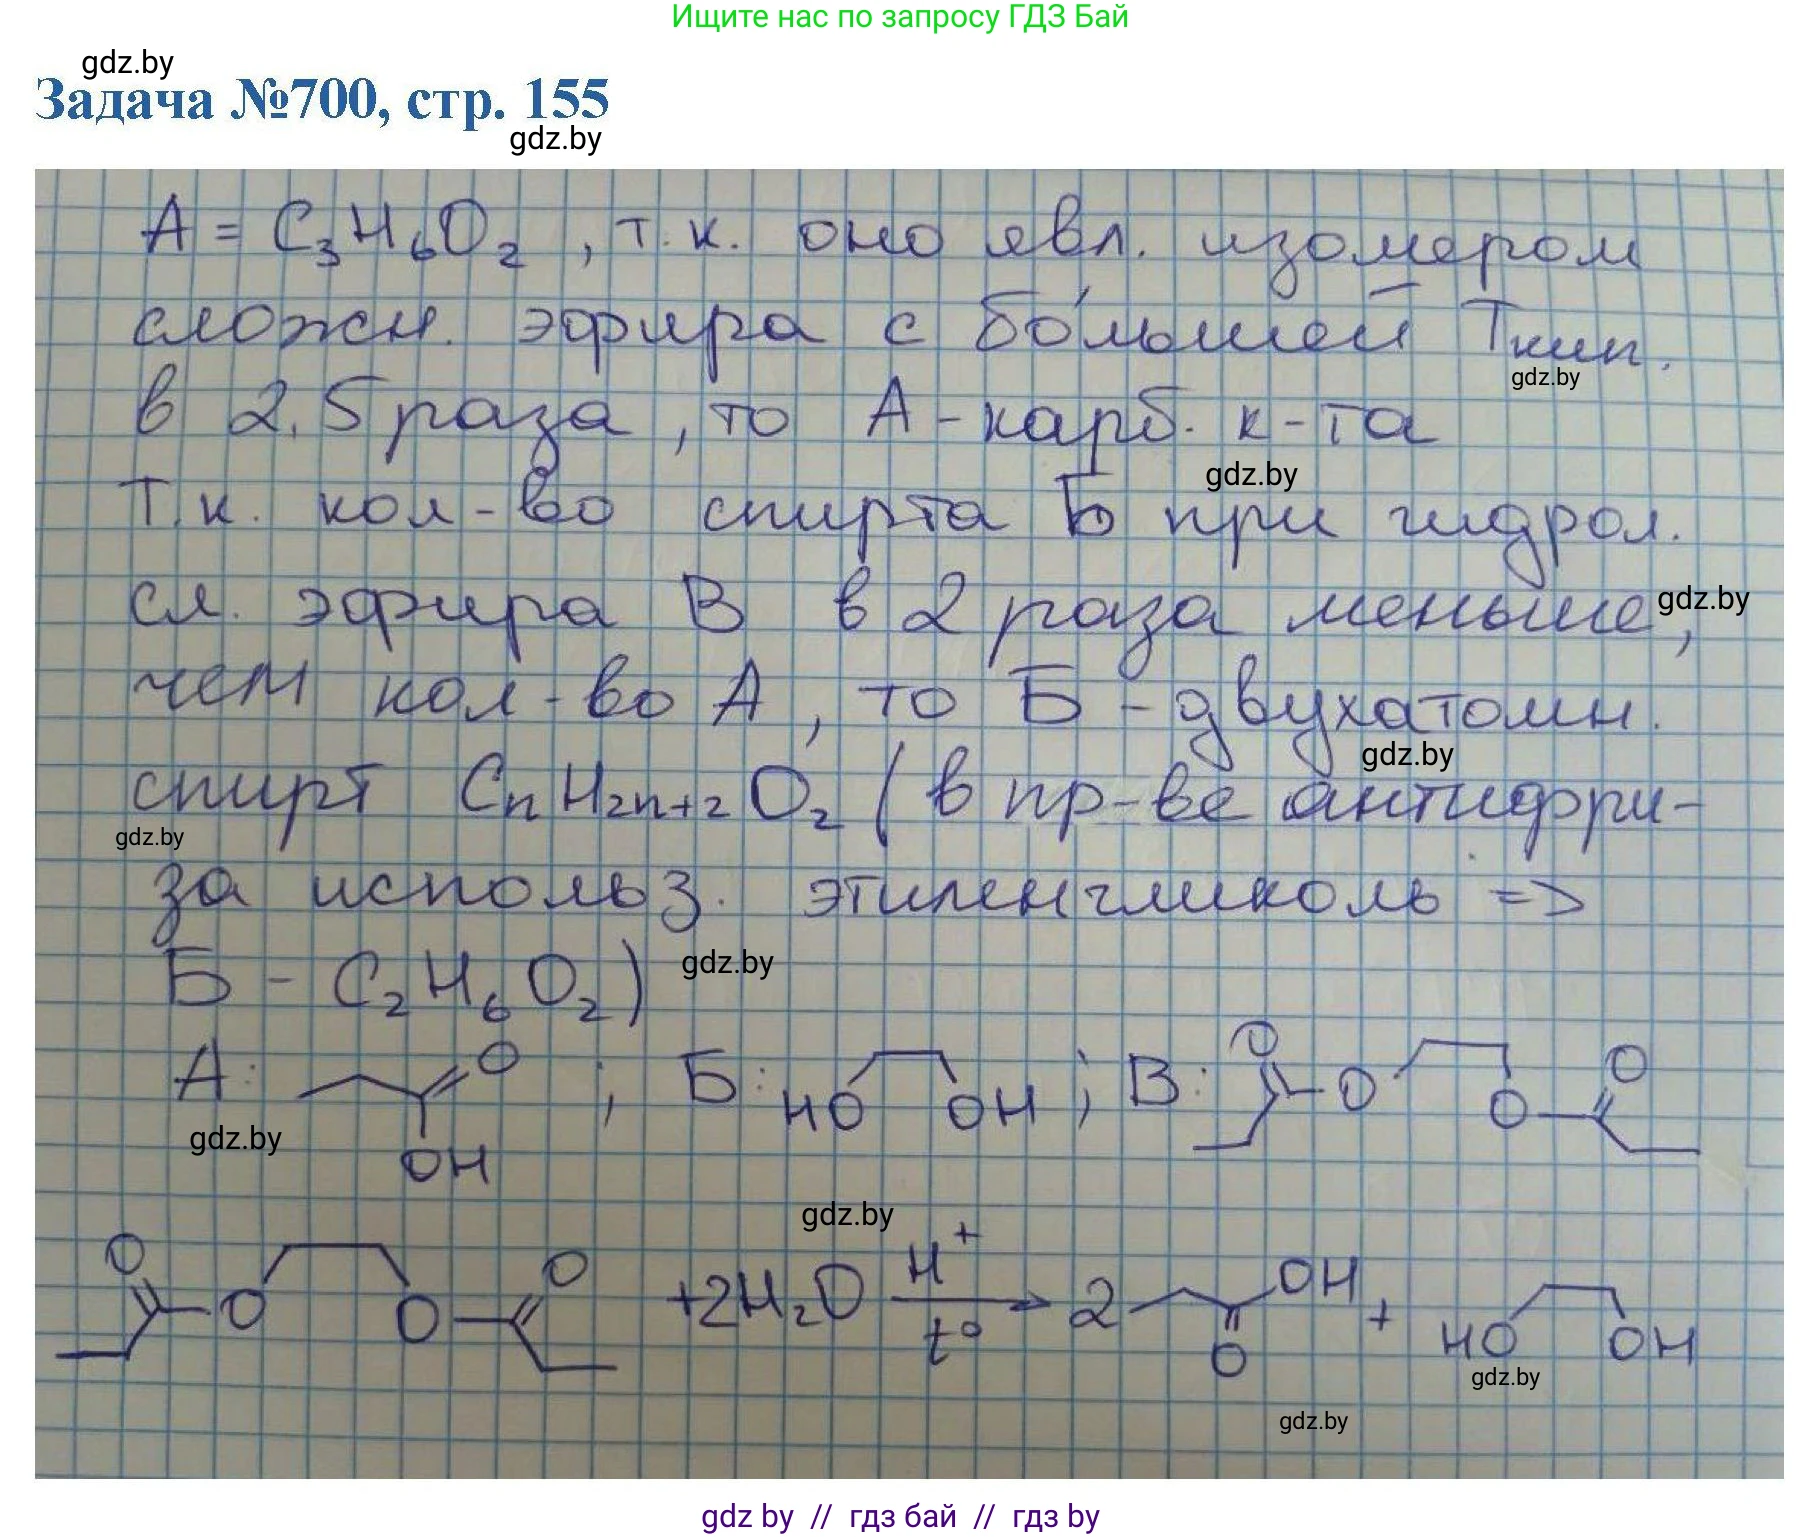 Ищите нас по запросу ГДЗ Бай
gdz.by
Задача №700, стр. 155
gdz.by
А = C₃H₆O₂, т.к. оно явл. изомером
сложн. эфира с бо́льшей Tкип.
gdz.by
в 2,5 раза, то А - карб. к-та
gdz.by
Т.к. кол-во спирта Б при гидрол.
сл. эфира В в 2 раза меньше,
gdz.by
чем кол-во А, то Б - двухатомн.
gdz.by
спирт CnH2n+2O₂ (в пр-ве антифри-
gdz.by
за использ. этиленгликоль =>
Б - C₂H₆O₂)
gdz.by
А: O OH ; Б: HO OH ; В: O O O O
gdz.by
gdz.by
O O O O +2H₂O H⁺ t° 2 OH O + HO OH
gdz.by
gdz.by
gdz.by // гдз бай // гдз by